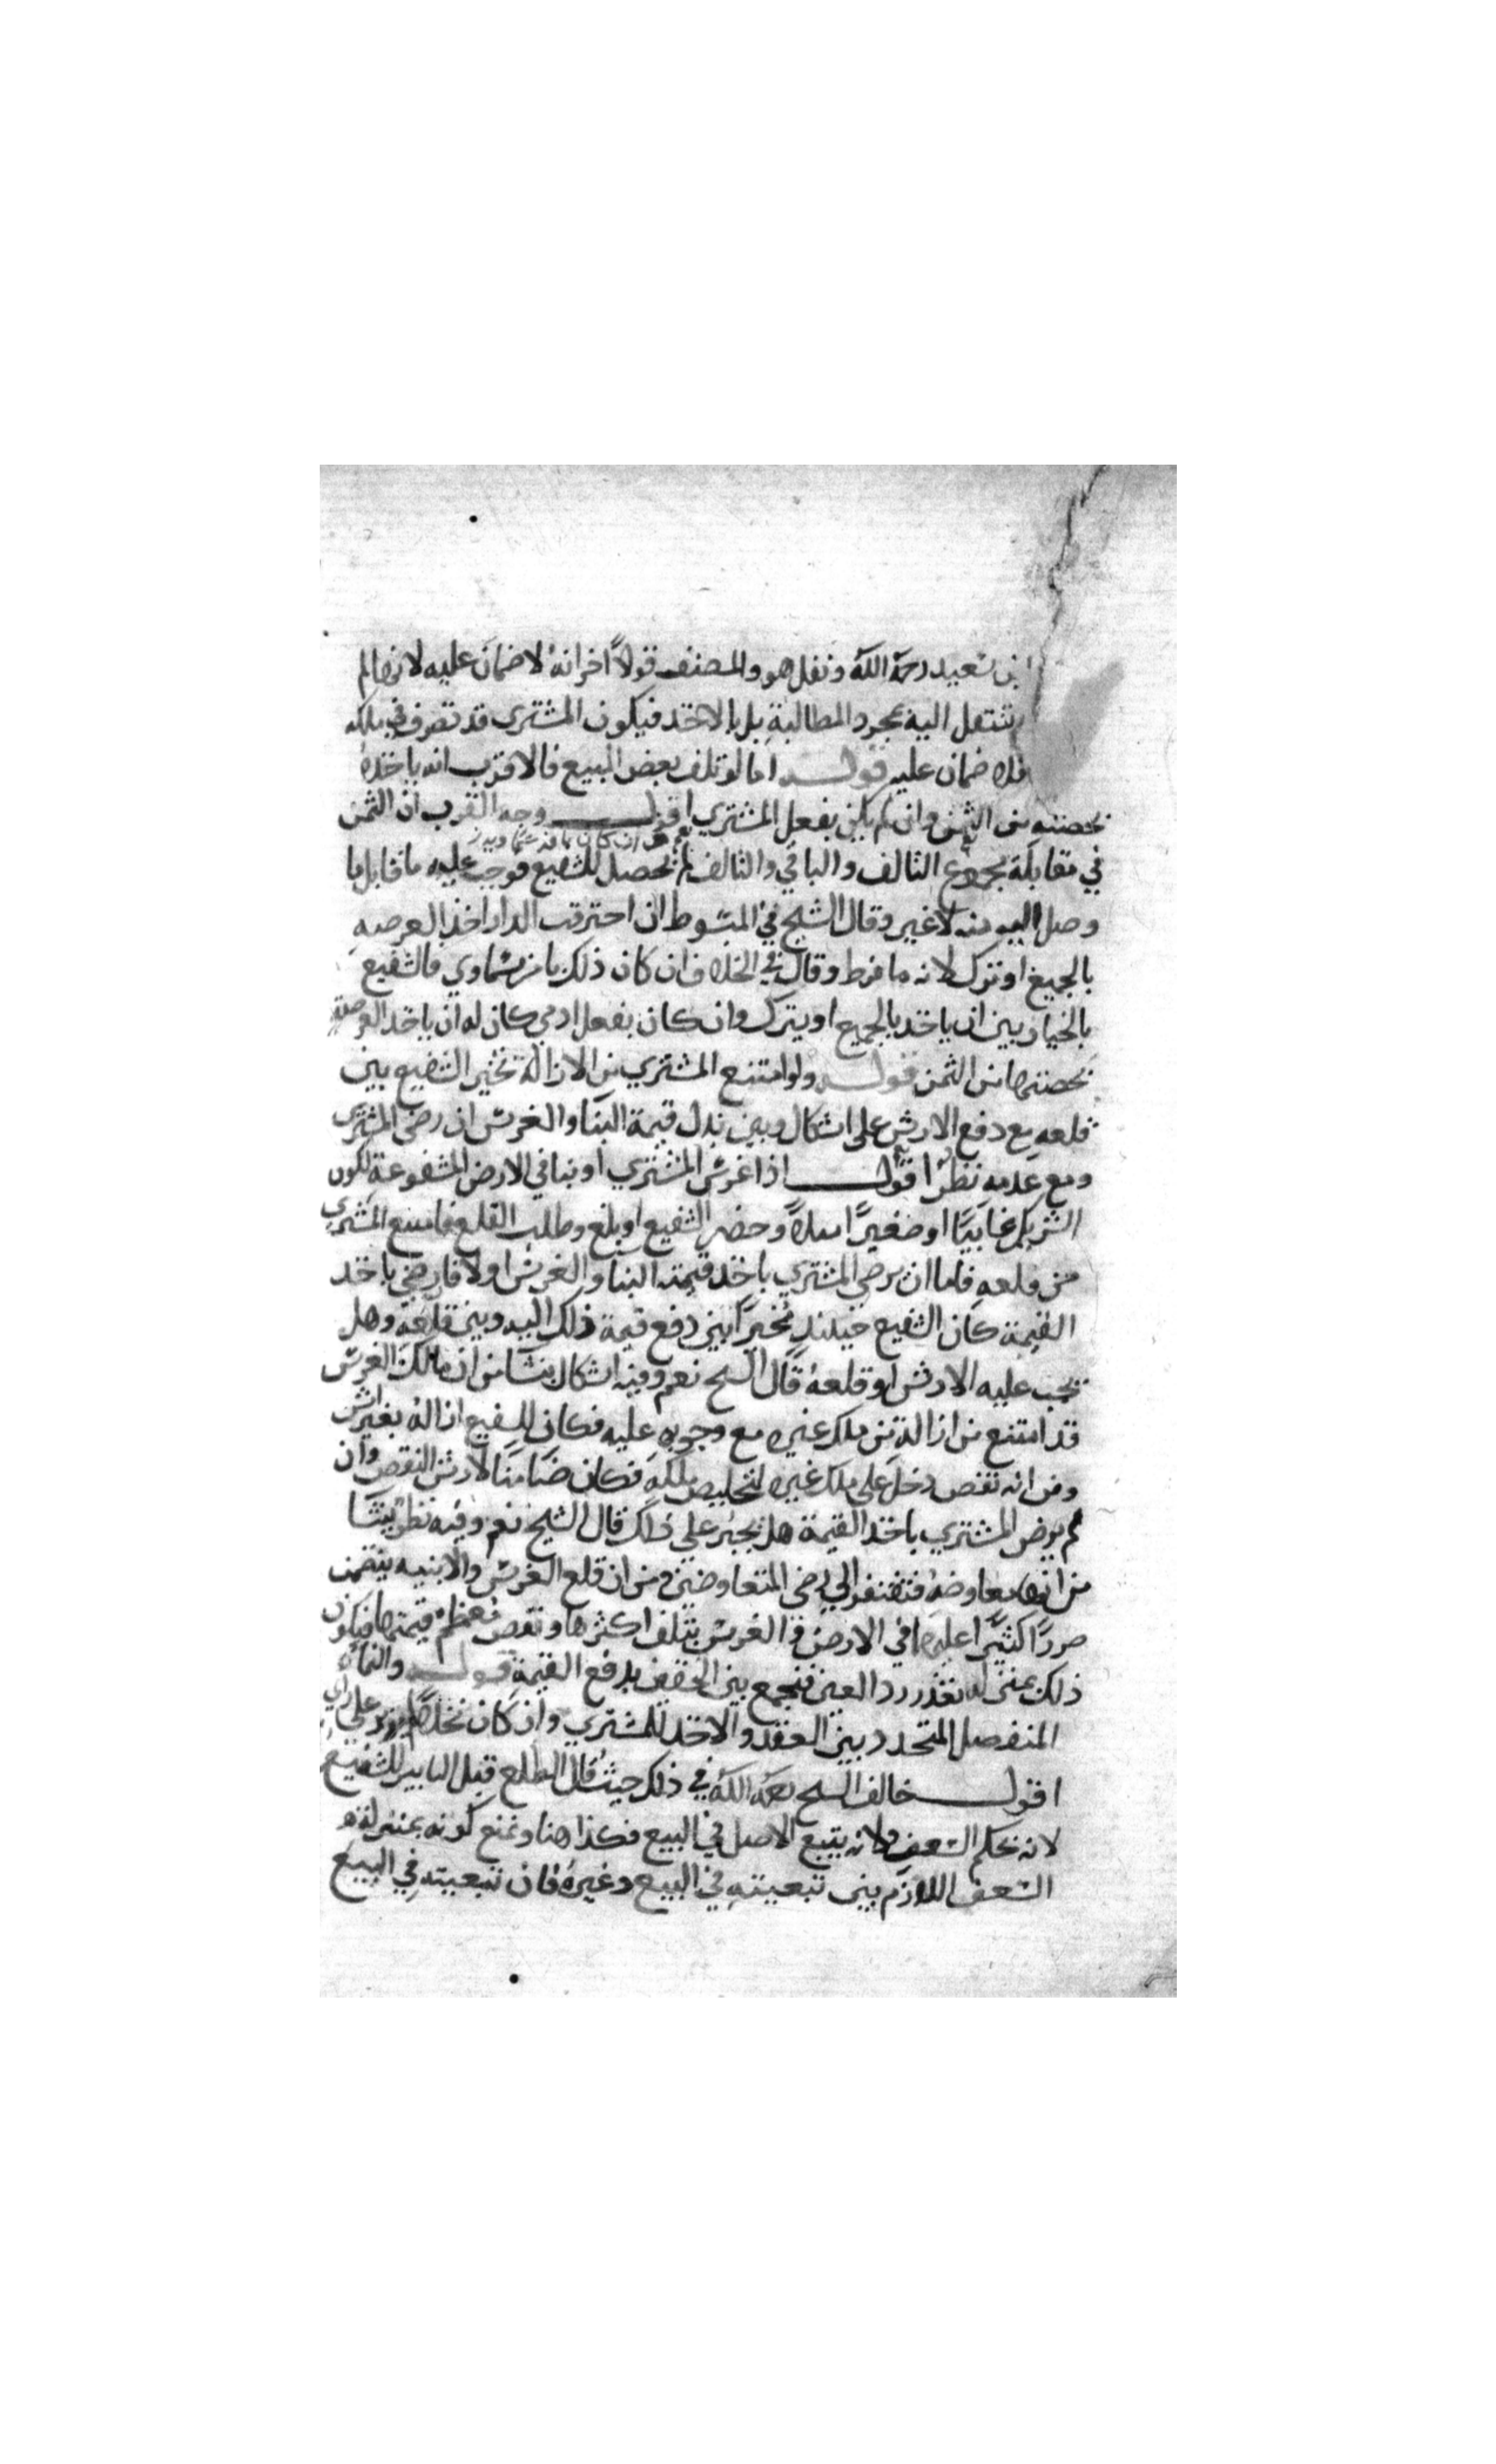 بن سعيد رحمة الله ونقل هو والمصنف قولاً اخر انه لا ضمان عليه لانها لم
ينتقل اليه بمجرد المطالبة بل بالاخذ فيكون المشتري قد تصرف في ملكه
فلا ضمان عليه قوله اما لو تلف بعض المبيع فالاقرب انه ياخذه
بحصته من الثمن وان لم يكن بفعل المشتري اقول وجه القرب ان الثمن
في مقابلة مجموع التالف والباقي والتالف لم يحصل للشفيع فوجب عليه ما قابل ما
وصل اليه منه لا غير وقال الشيخ في المبسوط ان احترقت الدار اخذ العرصه
بالجميع او ترك لانه ما فرط وقال في الخلاف ان كان ذلك بامر سماوي فالشفيع
بالخيار بين ان ياخذ بالجميع او يترك وان كان بفعل ادمي كان له ان ياخذ العرصة
بحصتها من الثمن قوله ولو امتنع المشتري من الازالة تخير الشفيع بين
قلعه مع دفع الارش على اشكال وبين بذل قيمة البنا والغرس ان رضى المشتري
ومع عدمه نظر اقول اذا غرس المشتري او بنا في الارض المشفوعة لكون
الشريك غايبًا او صغيرًا مثلاً وحضر الشفيع او بلغ وطلب القلع فامتنع المشتري
من قلعه فاما ان يرضى المشتري باخذ قيمة البنا والغرس او لا فان رضي باخذ
القيمة كان الشفيع حينئذ مخيرًا بين دفع قيمة ذلك اليه وبين قلعه وهل
يجب عليه الارش لو قلعه قال الشيخ نعم وفيه اشكال ينشا من ان مالك الغرس
قد امتنع من ازالة من ملك غيره مع وجوبه عليه فكان للشفيع ازاله بغير ارش
ومن انه نقص دخل على ملك غيره لتخليص ملكه فكان ضامنًا لارش النقص وان
لم يرض المشتري باخذ القيمة هل يجبر على ذلك قال الشيخ نعم وفيه نظر ينشا
من انها معاوضة فتفتقر الى رضى المتعاوضين ومن ان قلع الغرس والابنيه يتضمن
ضررًا كثيرًا عليهما في الارض والغرس بتلف اكثرها ونقص معظم قيمتها فيكون
ذلك بمنزلة تعذر رد العين فنجمع بين الحقين بدفع القيمة قوله والنماء
المنفصل المتجدد بين العقد والاخذ للمشتري وان كان نخلاً على راي
اقول خالف الشيخ رحمه الله في ذلك حيث قال الطلع قبل التابير للشفيع
لانه بحكم السعف ولانه يتبع الاصل في البيع فكذا هنا ونمنع كونه بمنزلة
السعف اللازم بين تبعيته في البيع وغيره فان تبعيته في البيع